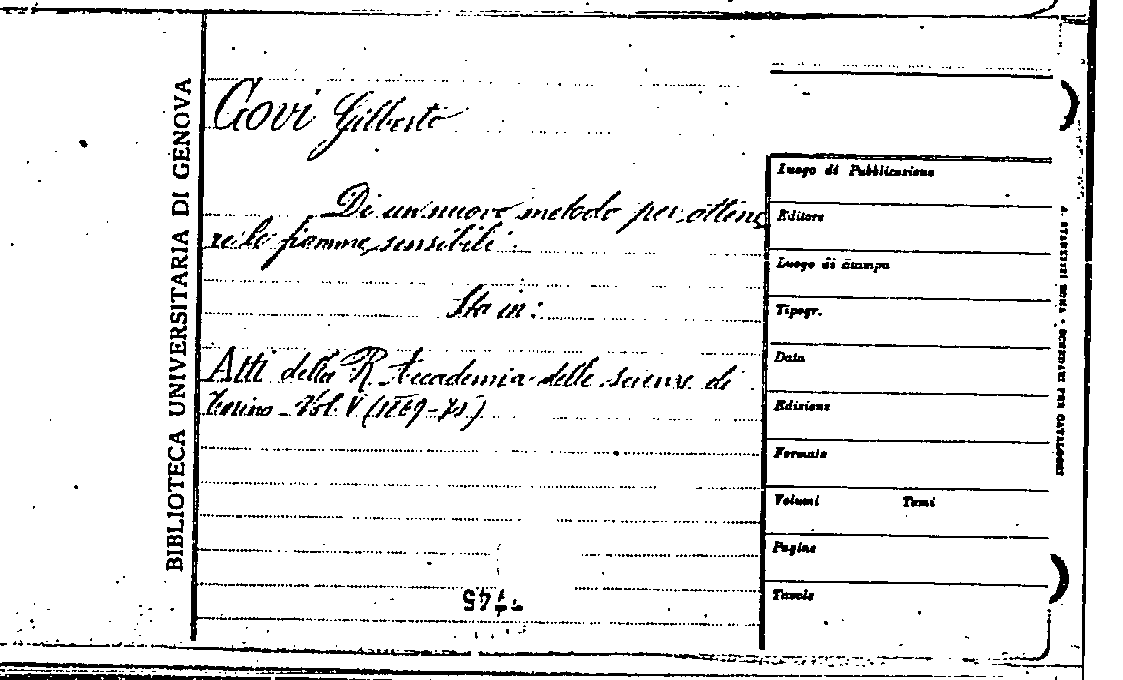 BIBLIOTECA UNIVERSITARIA DI GENOVA
Govi Gilberto
Di un nuovo metodo per ottene
re le fiamme sensibili.
Sta in:
Atti della R. Accademia delle scienze di
Torino - Vol. V (1869-70)
Luogo di Pubblicazione
Editore
Luogo di stampa
Tipogr.
Data
Edizione
Formato
Volumi Tomi
Pagine
Tavole